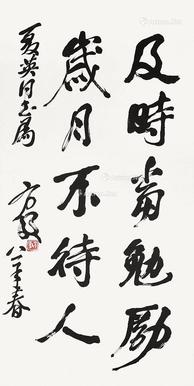 及時當勉勵
歲月不待人
夏英同志屬
方毅
八一年春